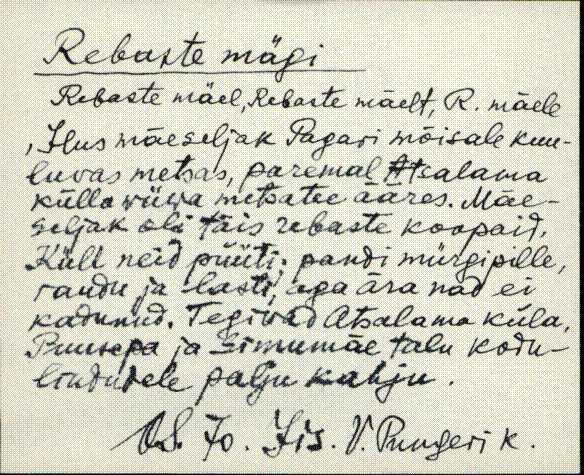 Rebaste mägi
Rebaste mäel, Rebaste mäelt, R. mäele
, Ilus mäeseljak Pagari mõisale kuu-
luvas metsas, paremal Atsalama
külla viiva metsatee ääres. Mäe-
seljak oli täis rebaste koopaid.
Küll neid püüti; pandi mürgipille,
raudu ja lasti, aga ära nad ei
kadunud. Tegivad Atsalama küla,
Puusepa ja Simumäe talu kodu-
lindudele palju kahju.
Jõ. Jis. V. Pungerik.